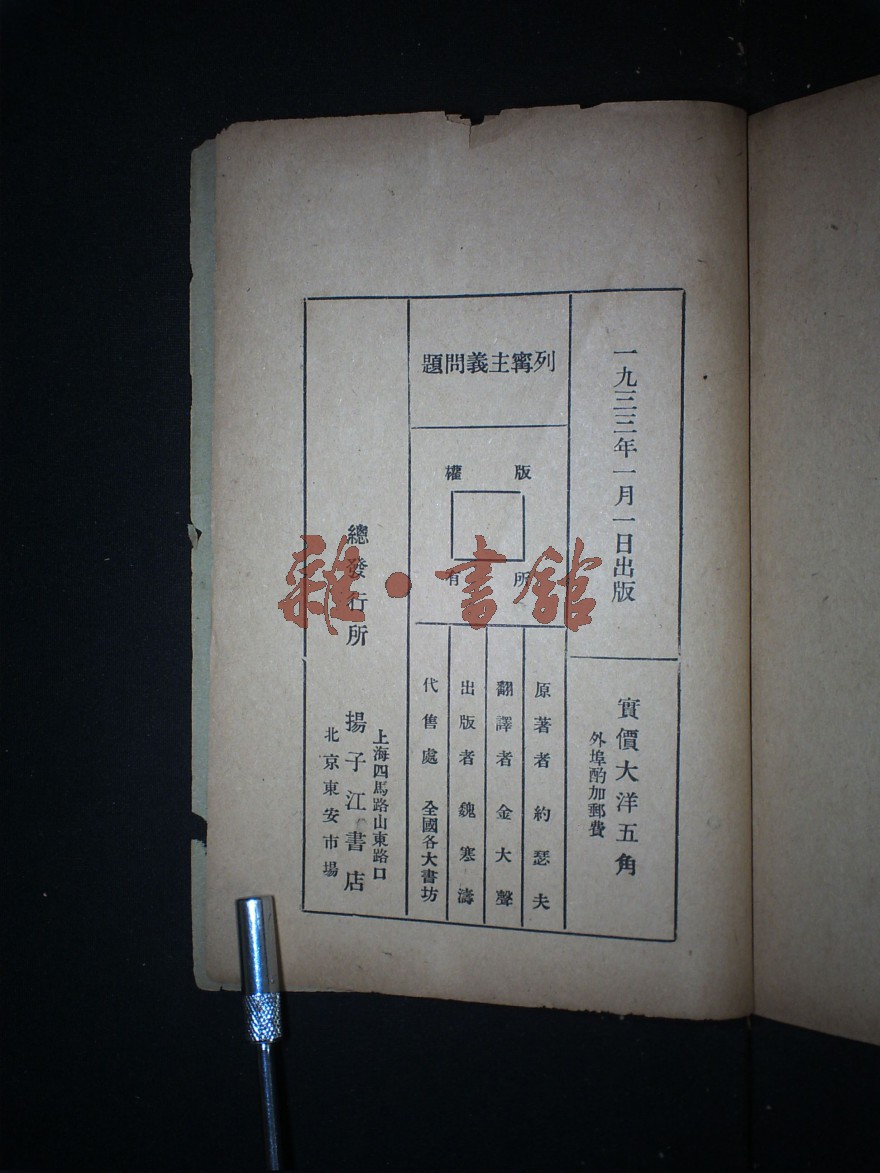 一九三三年一月一日出版
實價大洋五角
外埠酌加郵費
列寗主義問題
版權
所有
原著者 約瑟夫
翻譯者 金大聲
出版者 魏寒濤
代售處 全國各大書坊
總發行所
上海四馬路山東路口
揚子江書店
北京東安市場
雜·書館